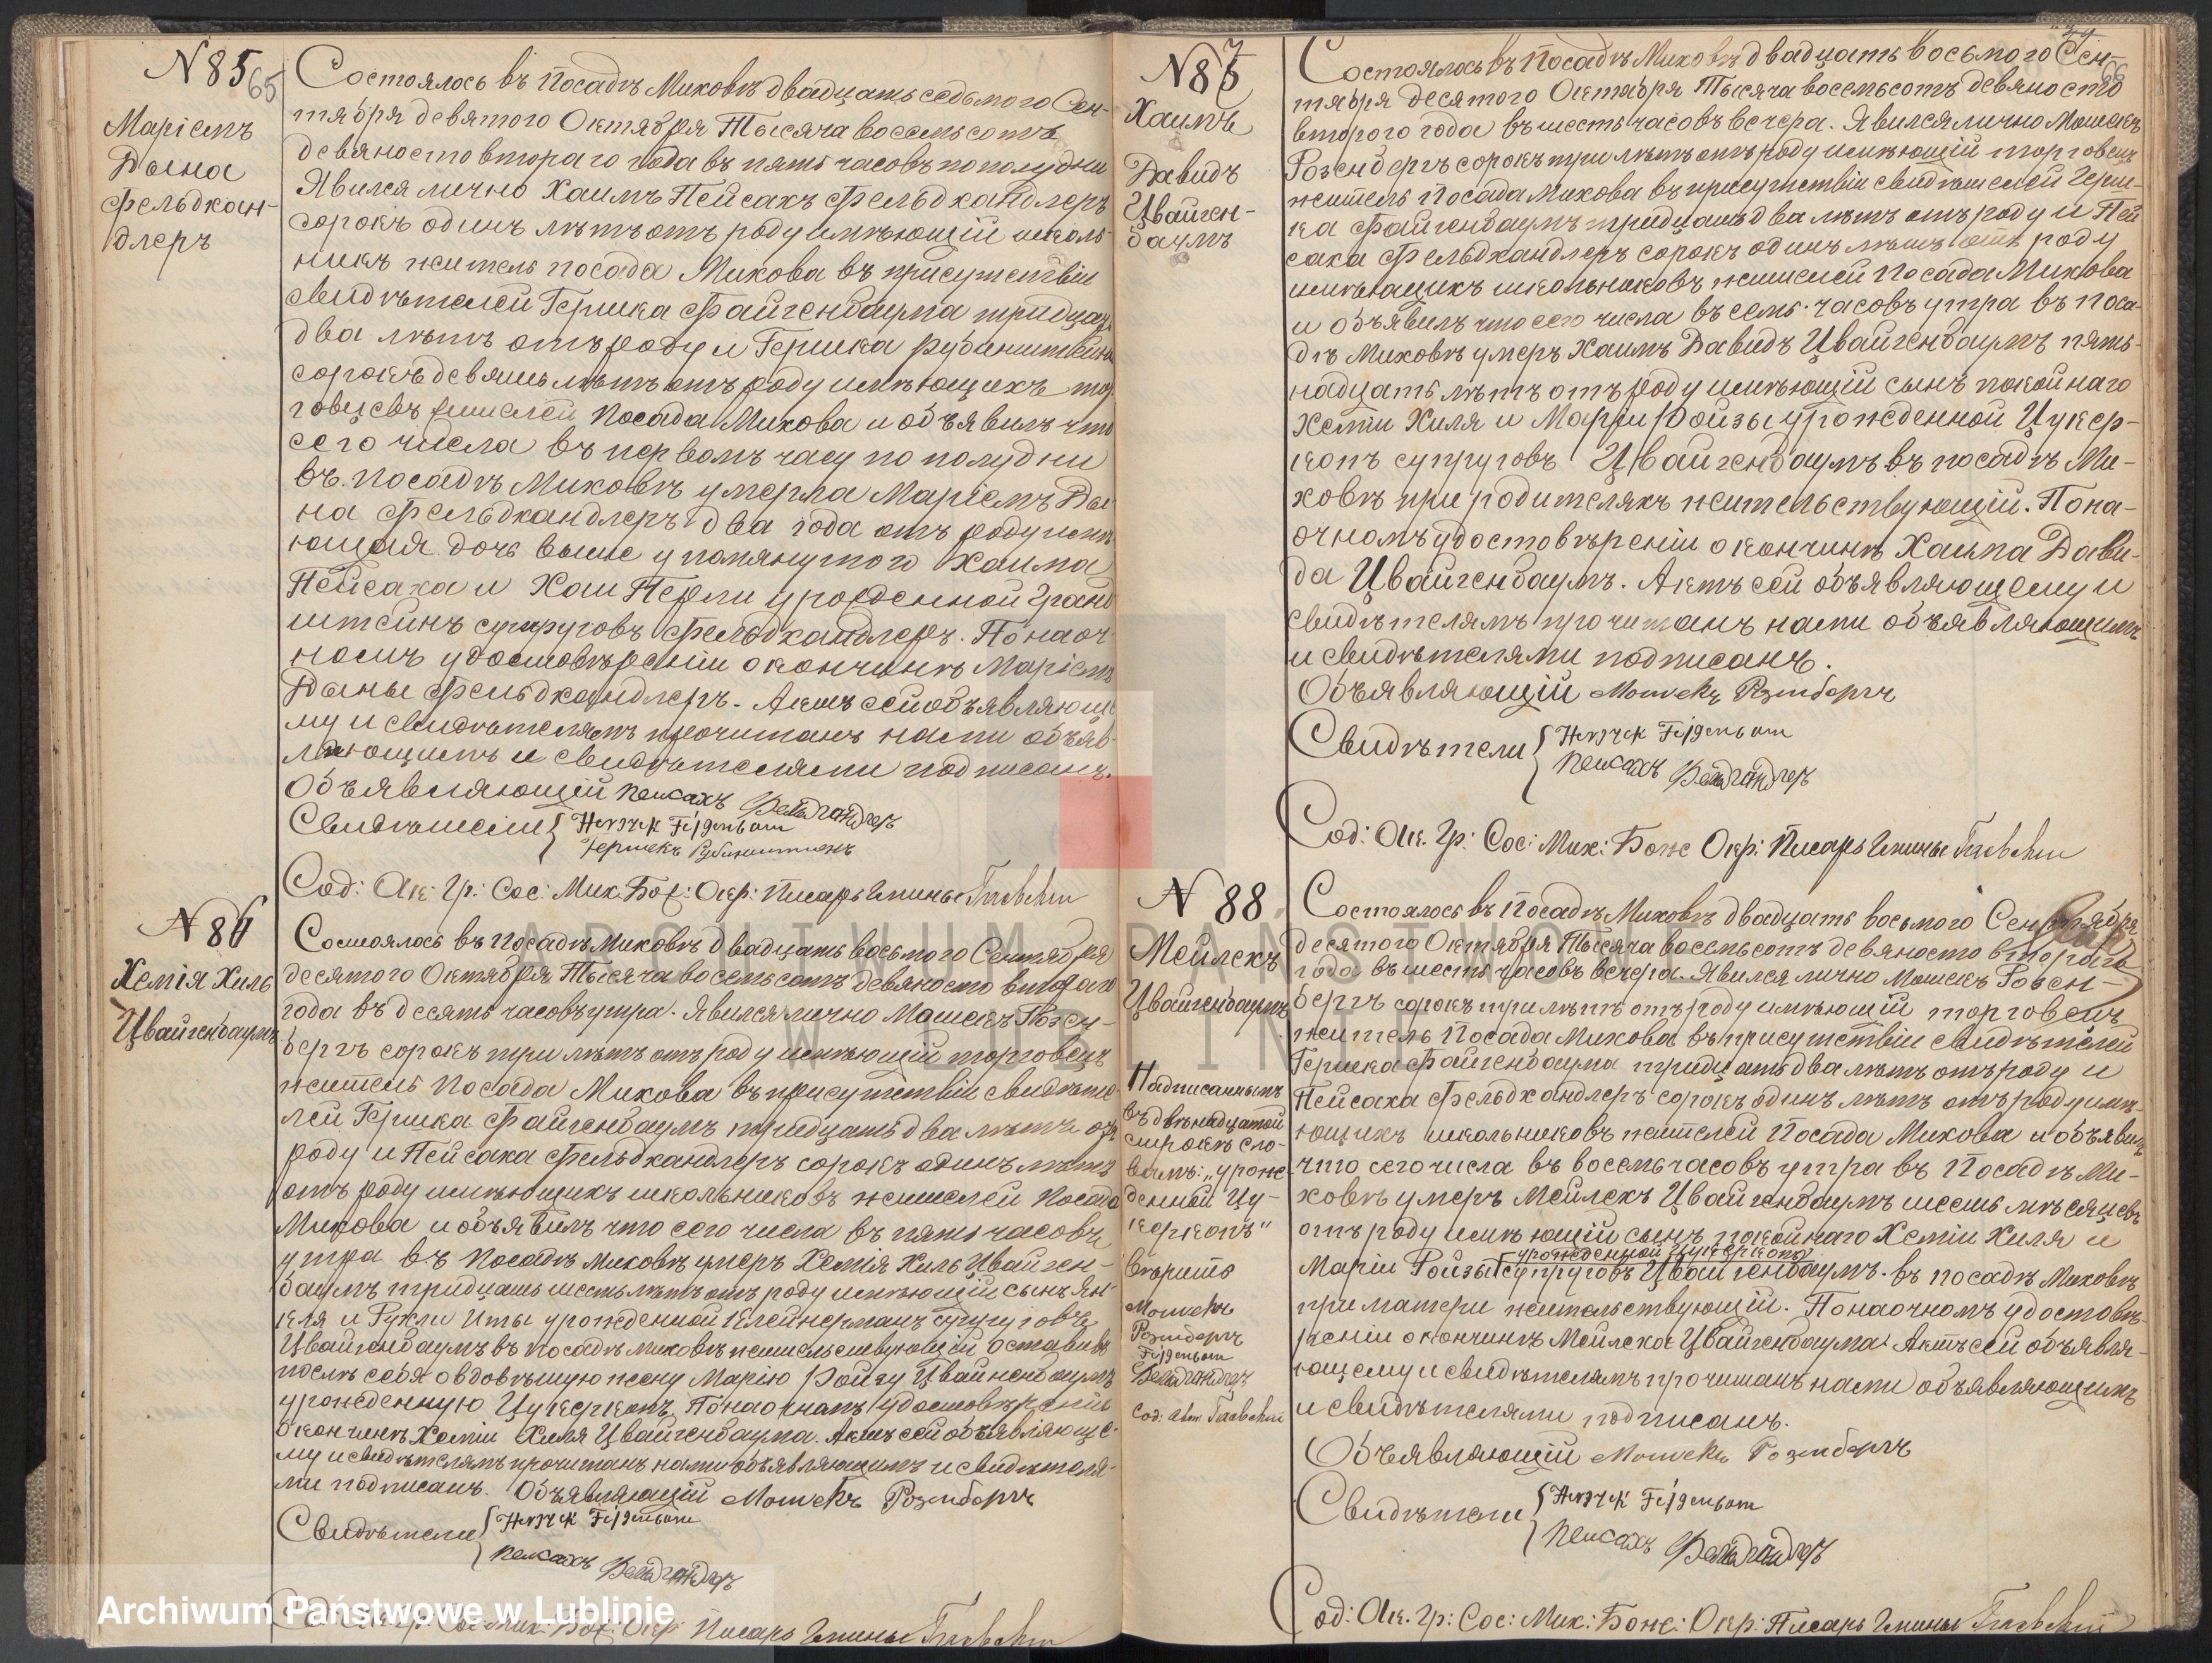 N 85 65
Маріемъ
Дына
Фельдкан-
длеръ
Состоялось въ Посадѣ Миховѣ двадцать седьмого Сен-
тября девятого Октября Тысяча восемьсотъ
девяносто втораго года въ пять часовъ по полудни
Явился лично Хаимъ Пейсахъ Фельдкандлеръ
сорокъ одинъ лѣтъ отъ роду имѣющій школь-
никъ житель посада Михова въ присутствіи
свидѣтелей Гершка Файгенбаума тридцать
два лѣтъ отъ роду и Гершка Рубинштейна
сорокъ девять лѣтъ отъ роду имѣющихъ тор-
говцевъ жителей Посада Михова и объявилъ что
сего числа въ первомъ часу по полудни
въ Посадѣ Миховѣ умерла Маріемъ Ды-
на Фельдкандлеръ два года отъ роду имѣ-
ющая дочь выше упомянутого Хаима
Пейсаха и Хаи Перли урожденной Гранд
штейнъ супруговъ Фельдкандлеръ. По наоч-
номъ удостовѣреніи о кончинѣ Маріемъ
Дыны Фельдкандлеръ. Актъ сей объявляюще-
му и свидѣтелямъ прочитанъ нами объяв-
ляющимъ и свидѣтелями подписанъ.
Объявляющій Пейсахъ Фельдгандлеръ
Свидѣтели { Herszek Fejgenbom
Гершекъ Рубинштейнъ
Сод: Ак: Гр: Сос: Мих: Бож: Окр: Писарь Гмины
N 86
Хемія Хиль
Цвайгенбаумъ
Состоялось въ Посадѣ Миховѣ двадцать восьмого Сентября
десятого Октября Тысяча восемьсотъ девяносто втораго
года въ десять часовъ утра. Явился лично Мошекъ Розен-
бергъ сорокъ три лѣтъ отъ роду имѣющій торговецъ
житель Посада Михова въ присутствіи свидѣте-
лей Гершка Файгенбаумъ тридцать два лѣтъ отъ
роду и Пейсаха Фельдкандлеръ сорокъ одинъ лѣтъ
отъ роду имѣющихъ школьниковъ жителей Посада
Михова и объявилъ что сего числа въ пять часовъ
утра въ Посадѣ Миховѣ умеръ Хемія Хиль Цвайген-
баумъ тридцать шесть лѣтъ отъ роду имѣющій сынъ Ян-
келя и Рухли Иты урожденной Клейнерманъ супруговъ
Цвайгенбаумъ въ Посадѣ Миховѣ жительствующій оставивъ
послѣ себя овдовѣвшую жену Марію Ройзу Цвайгенбаумъ
урожденную Цукеркопъ. По наочномъ удостовѣреніи
о кончинѣ Хеміи Хиля Цвайгенбаума. Актъ сей объявляюще-
му и свидѣтелямъ прочитанъ нами объявляющимъ и свидѣтеля-
ми подписанъ. Объявляющій Мошекъ Розенбергъ
Свидѣтели { Herszek Fejgenbom
Пейсахъ Фельдгандлеръ
Сод: Ак: Гр: Сос: Мих: Бож: Окр: Писарь Гмины
N 87
Хаимъ
Давидъ
Цвайген-
баумъ
66
Состоялось въ Посадѣ Миховѣ двадцать восьмого Сен-
тября десятого Октября Тысяча восемьсотъ девяносто
второго года въ шесть часовъ вечера. Явился лично Мошекъ
Розенбергъ сорокъ три лѣтъ отъ роду имѣющій торговецъ
житель Посада Михова въ присутствіи свидѣтелей Герш-
ка Файгенбаумъ тридцать два лѣтъ отъ роду и Пей
саха Фельдкандлеръ сорокъ одинъ лѣтъ отъ роду
имѣющихъ школьниковъ жителей Посада Михова
и объявилъ что сего числа въ семь часовъ утра въ Поса-
дѣ Миховѣ умеръ Хаимъ Давидъ Цвайгенбаумъ пять-
надцать лѣтъ отъ роду имѣющій сынъ покойнаго
Хеміи Хиля и Маріи Ройзы урожденной Цукер-
копъ супруговъ Цвайгенбаумъ въ посадѣ Ми-
ховѣ при родителяхъ жительствующій. По на-
очномъ удостовѣреніи о кончинѣ Хаима Дави-
да Цвайгенбаумъ. Актъ сей объявляющему и
свидѣтелямъ прочитанъ нами объявляющимъ
и свидѣтелями подписанъ.
Объявляющій Мошекъ Розенбергъ
Свидѣтели { Herszek Fejgenbom
Пейсахъ Фельдгандлеръ
Сод: Ак. Гр: Сос: Мих: Бож: Окр: Писарь Гмины
N 88
Мейлехъ
Цвайгенбаумъ
Надписаннымъ
въ двѣнадцатой
строкѣ сло-
вамъ: „урож-
денной Цу-
керкопъ"
вѣрить
Мошекъ
Розенбергъ
Fejgenbom
Фельдгандлеръ
Сод: Акт.
Состоялось въ Посадѣ Миховѣ двадцать восьмого Сентября
десятого Октября Тысяча восемьсотъ девяносто втораго
года въ шесть часовъ вечера. Явился лично Мошекъ Розен-
бергъ сорокъ три лѣтъ отъ роду имѣющій торговецъ
житель Посада Михова въ присутствіи свидѣтелей
Гершка Файгенбаума тридцать два лѣтъ отъ роду и
Пейсаха Фельдкандлеръ сорокъ одинъ лѣтъ отъ роду имѣ-
ющихъ школьниковъ жителей Посада Михова и объявилъ
что сего числа въ восемь часовъ утра въ Посадѣ Ми-
ховѣ умеръ Мейлехъ Цвайгенбаумъ шесть мѣсяцевъ
отъ роду имѣющій сынъ покойнаго Хеміи Хиля и
урожденной Цукеркопъ
Маріи Ройзы супруговъ Цвайгенбаумъ. въ посадѣ Миховѣ
при матери жительствующій. По наочномъ удостовѣ-
реніи о кончинѣ Мейлеха Цвайгенбаума Актъ сей объявля-
ющему и свидѣтелямъ прочитанъ нами объявляющимъ
и свидѣтелями подписанъ.
Объявляющій Мошекъ Розенбергъ
Свидѣтели { Herszek Fejgenbom
Пейсахъ Фельдгандлеръ
Сод: Ак. Гр: Сос: Мих: Бож: Окр: Писарь Гмины
ARCHIWUM PAŃSTWOWE
W LUBLINIE
Archiwum Państwowe w Lublinie